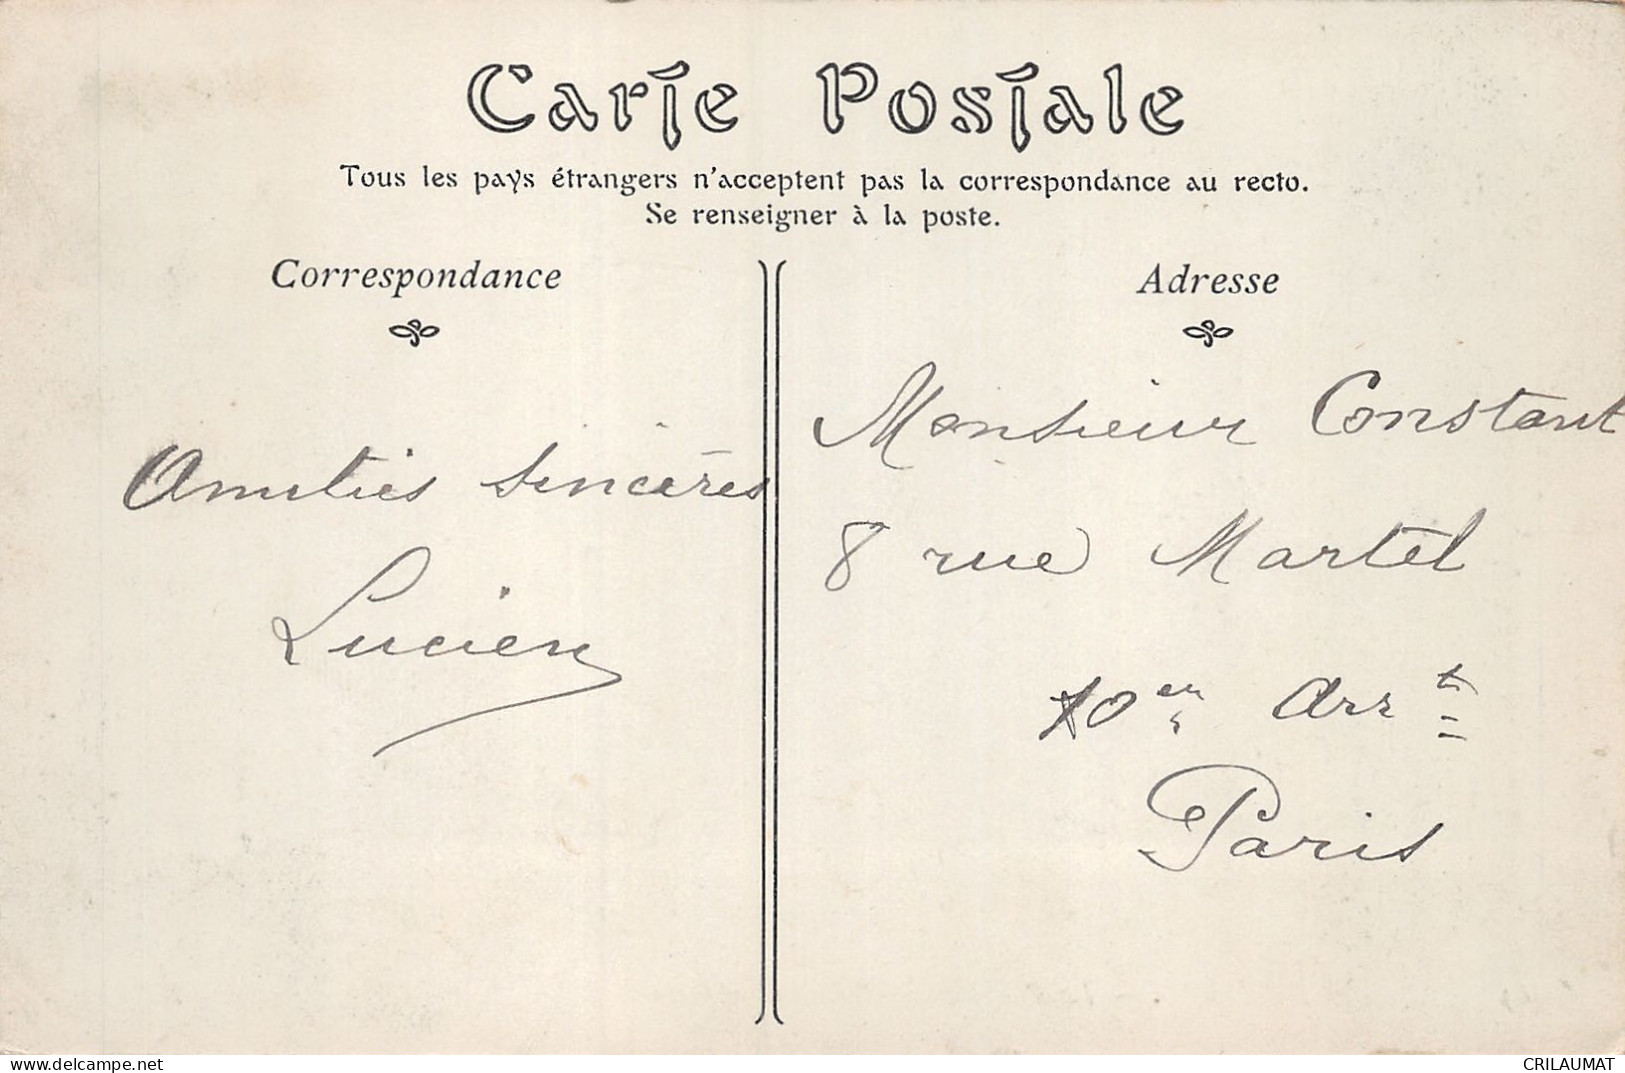 Carte Postale
Tous les pays étrangers n'acceptent pas la correspondance au recto.
Se renseigner à la poste.
Correspondance
Amitiés sincères
Lucien
Adresse
Monsieur Constant
8 rue Martel
10er Arrt
Paris
www.delcampe.net
CRILAUMAT